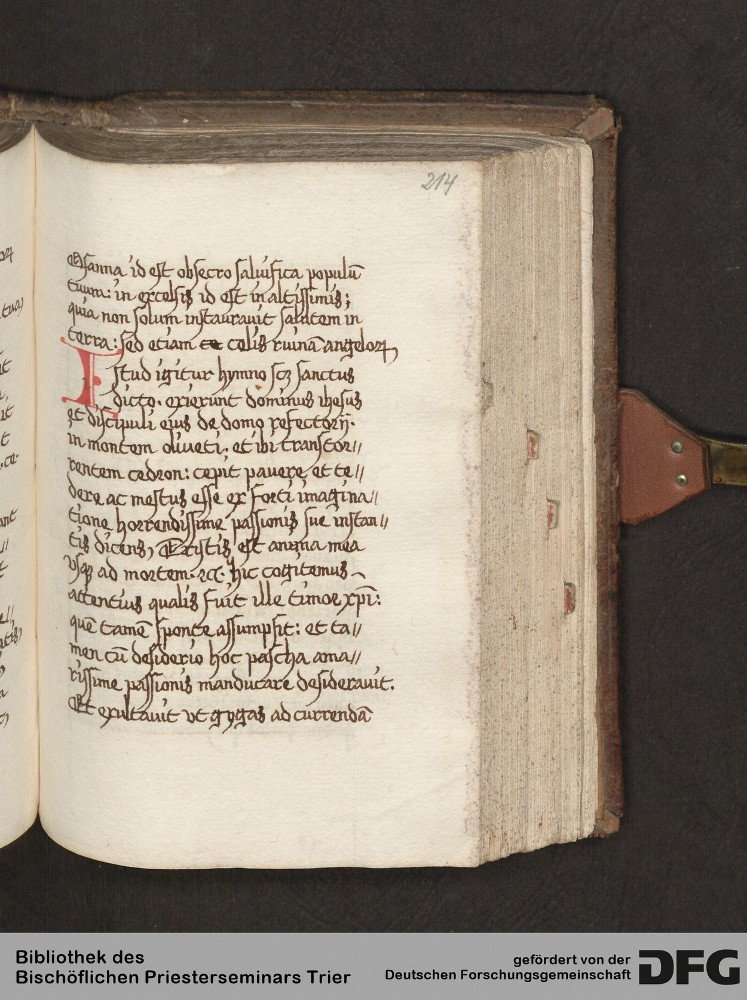 214
Osanna id est obsecro saluifica populū
tuum: in excelsis id est in altissimis;
quia non solum instaurauit salutem in
terra: sed etiam te celis ruinā angeloꝝ
Istud igitur hymno scꝫ sanctus
dicto. exierunt dominus ihesus
et discipuli eius de domo refectorij.
in montem oliueti. et ibi transtor//
rentem cedron: cepit pauere et te//
dere ac mestus esse ex forti imagina//
tione horrendissime passionis sue instan//
tis dicens, Tristis est anima mea
vsqꝫ ad mortem. ⁊c. hic cogitemus
attentius qualis fuit ille timor xp̄i:
quē tamē sponte assumpsit: et ta//
men cū desiderio hoc pascha ama//
rissime passionis manducare desiderauit.
Et exultauit vt gygas ad currendā
Bibliothek des
Bischöflichen Priesterseminars Trier
gefördert von der
Deutschen Forschungsgemeinschaft
DFG